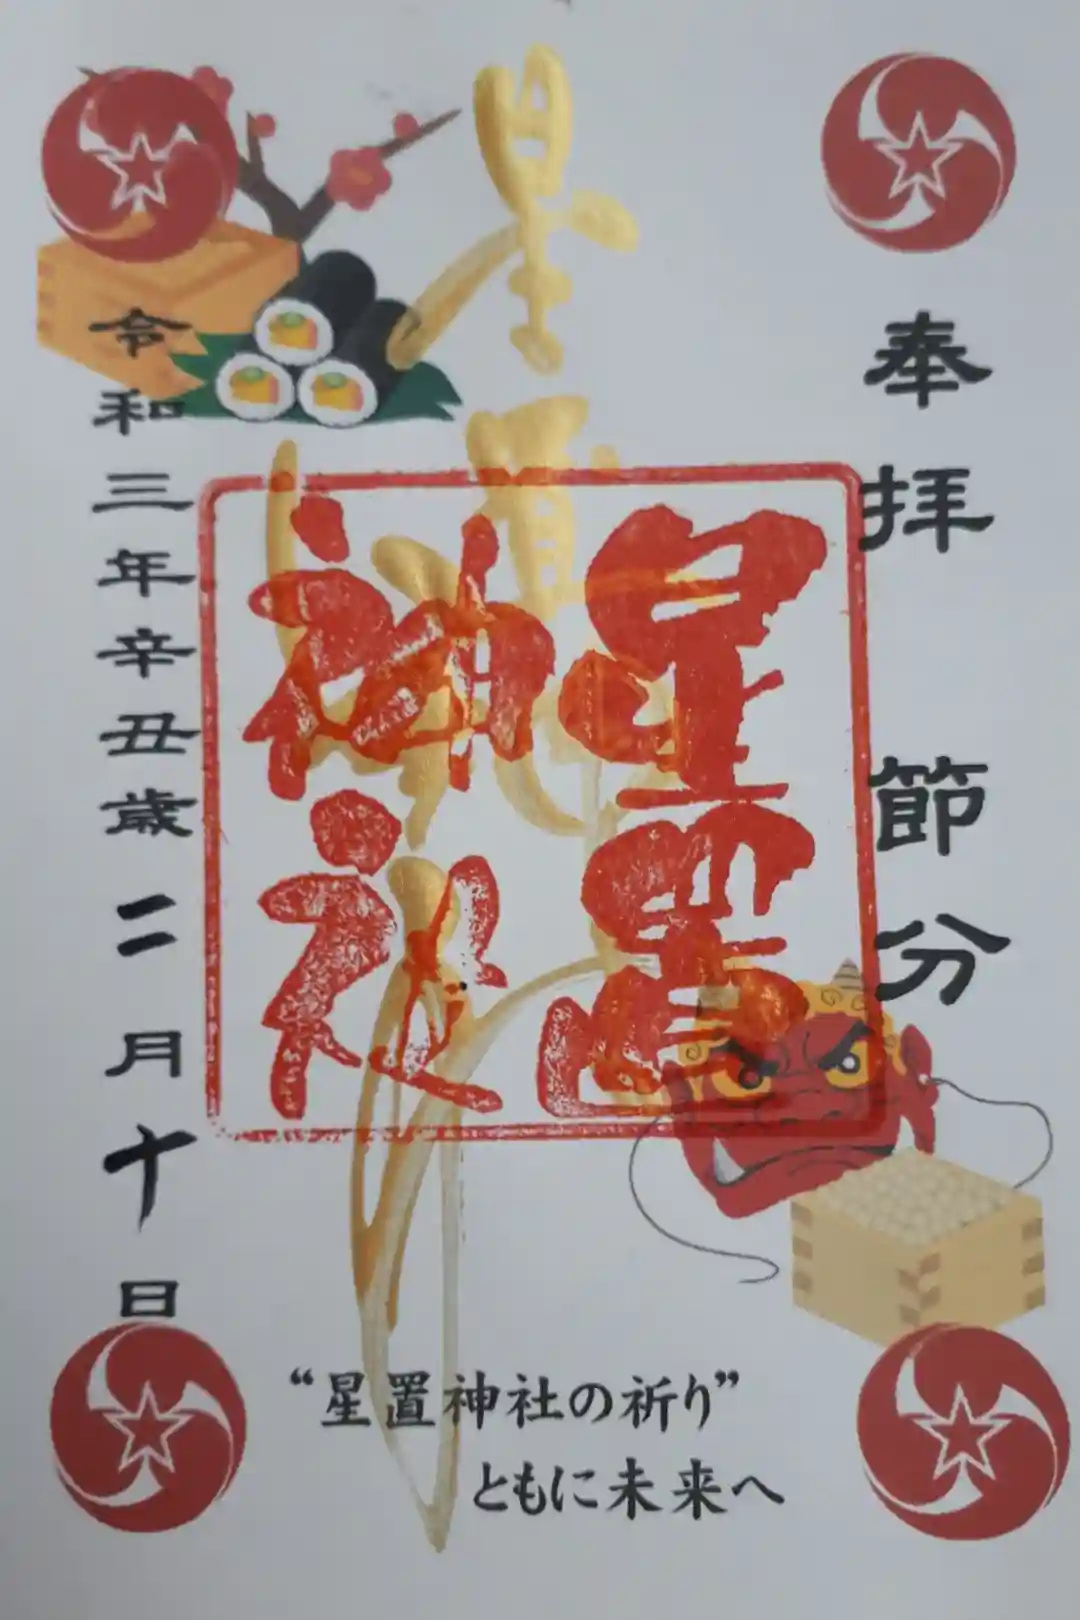 奉拝 節分
星置神社
星置神社
令和三年辛丑歳二月十日
“星置神社の祈り”
ともに未来へ